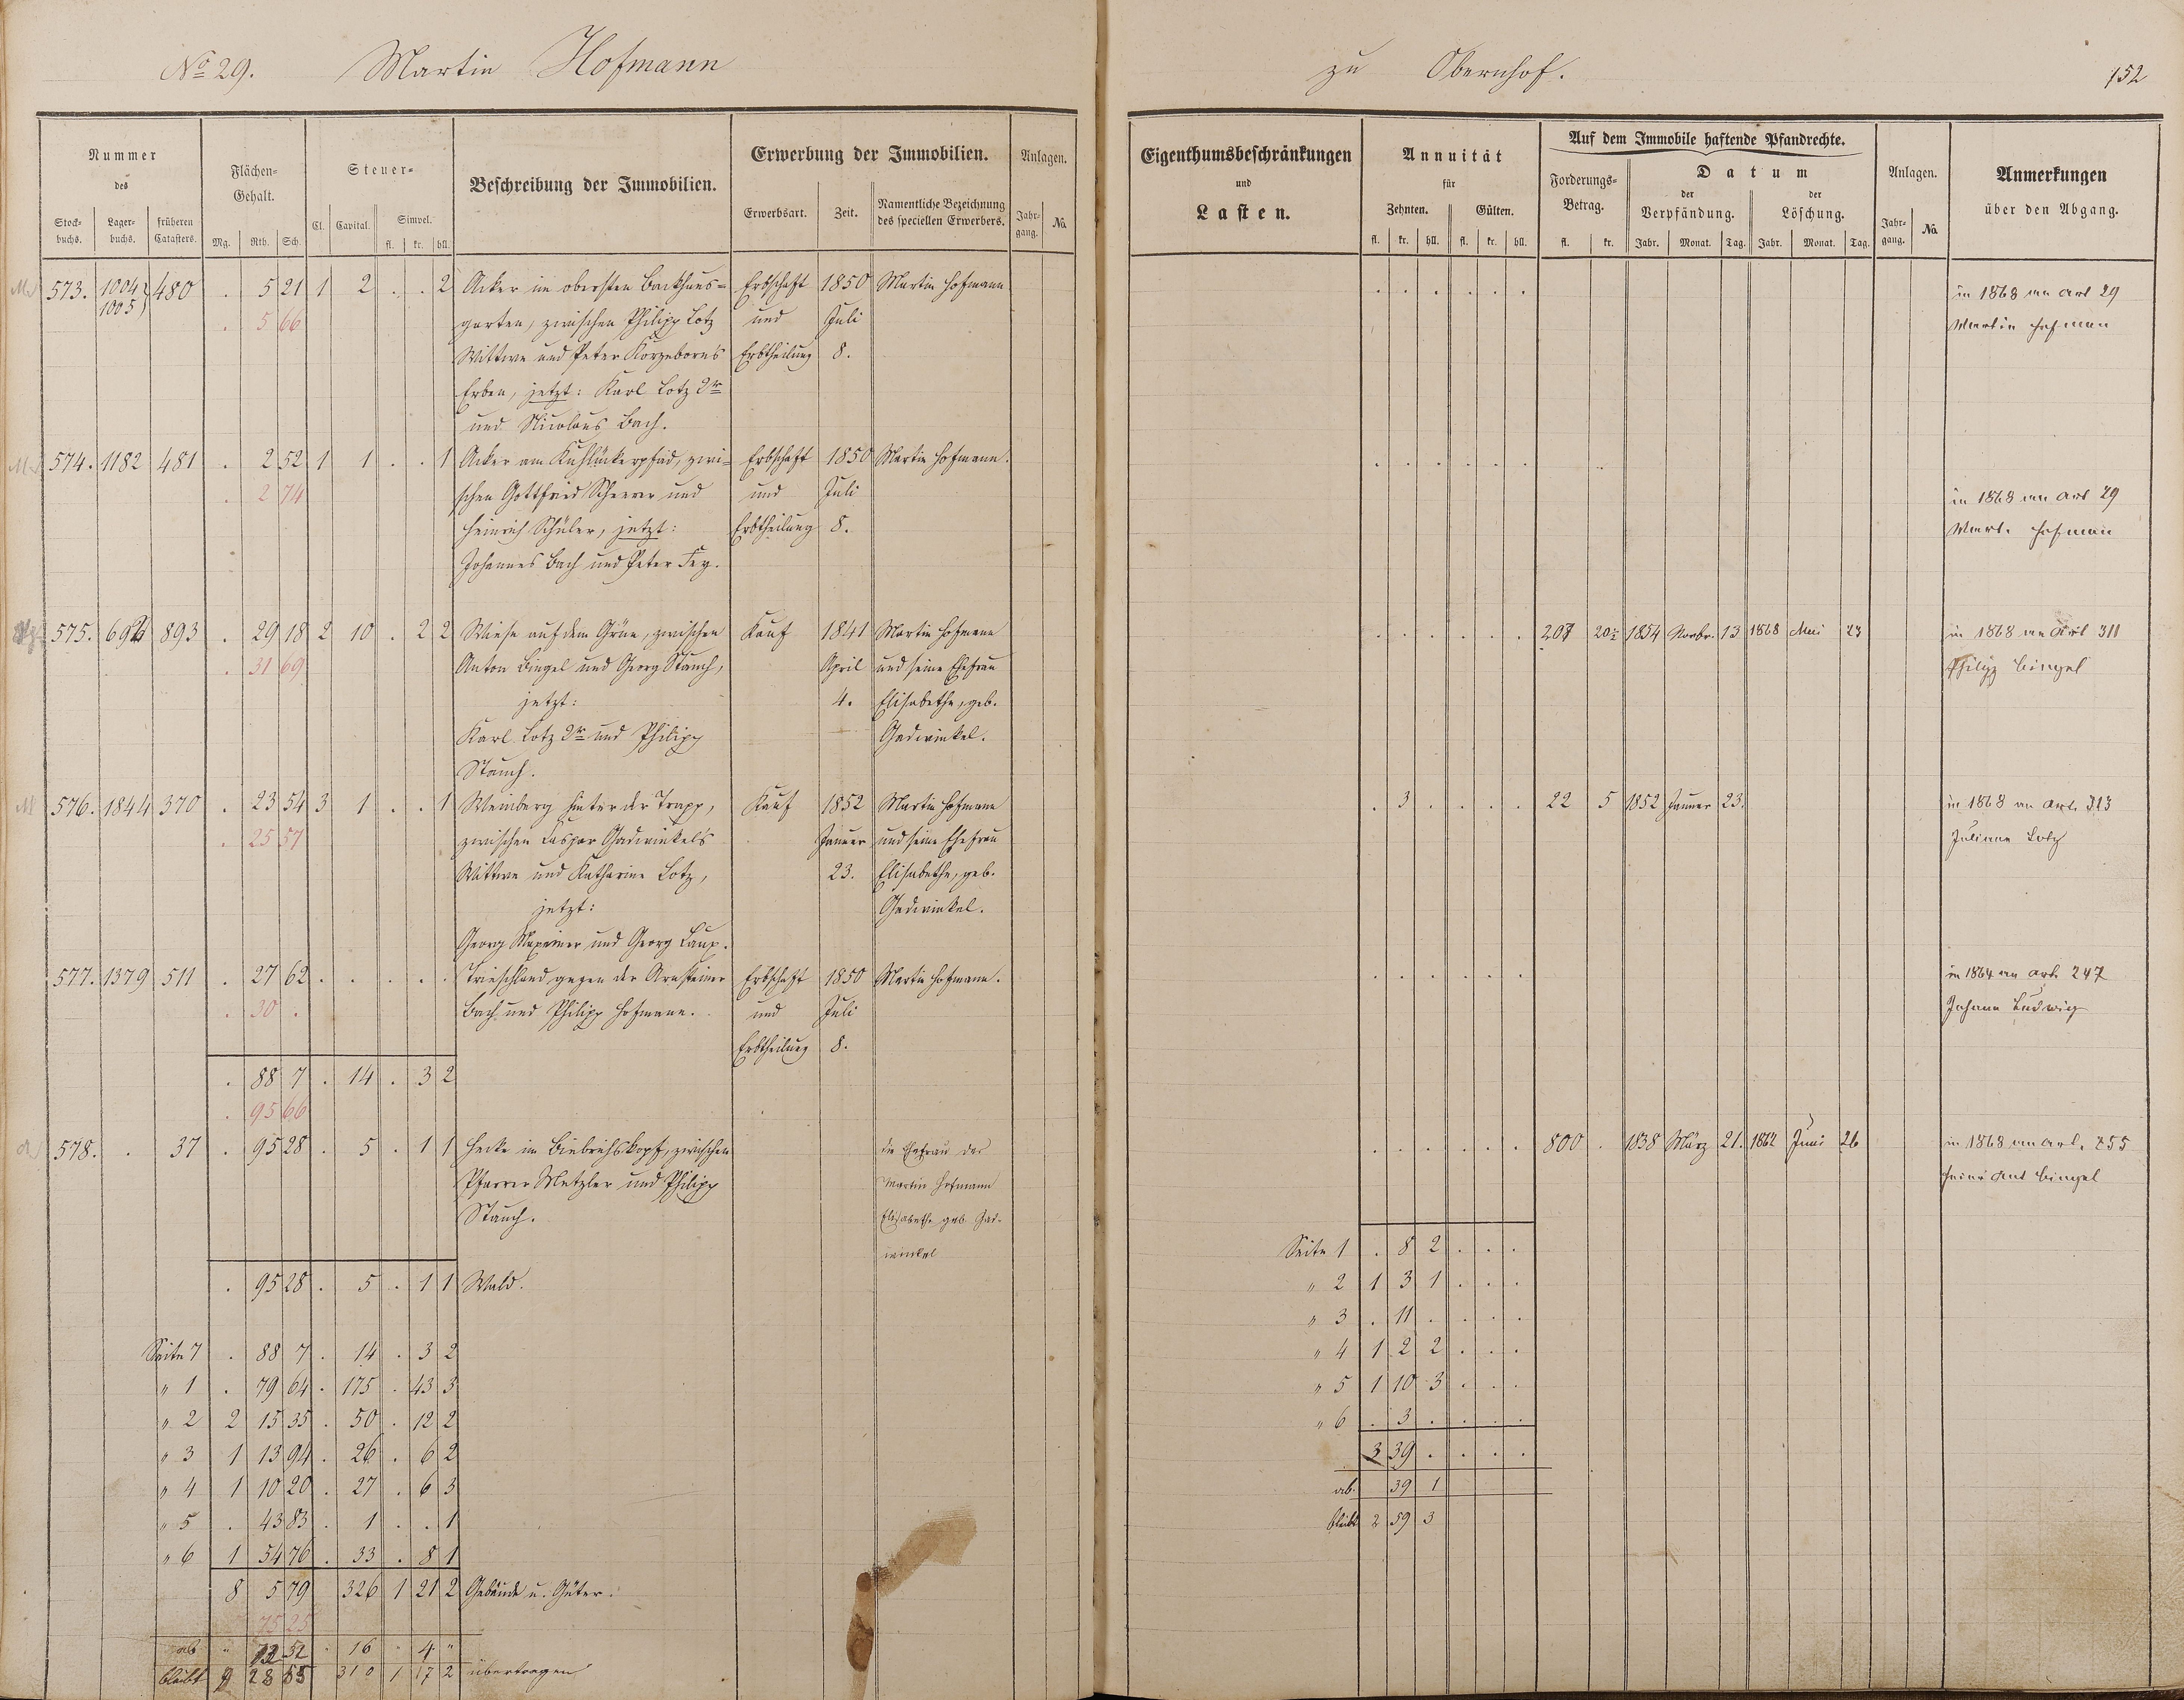 No 29. Martin Hofmann
zu Obernhof.
152
Nummer des
Stock-buchs. Lager-buchs. früheren Catasters.
Flächen-Gehalt.
Mg. Rth. Sch.
Steuer-
Cl. Capital. Simpel.
fl. kr. hll.
Beschreibung der Immobilien.
Erwerbung der Immobilien.
Erwerbsart. Zeit. Namentliche Bezeichnung des speciellen Erwerbers.
Anlagen.
Jahr-gang. No.
Eigenthumsbeschränkungen und Lasten.
Annuität für
Zehnten. Gülten.
fl. kr. hll. fl. kr. hll.
Auf dem Immobile haftende Pfandrechte.
Forderungs-Betrag.
fl. kr.
Datum
der Verpfändung. der Löschung.
Jahr. Monat. Tag. Jahr. Monat. Tag.
Anlagen.
Jahr-gang. No.
Anmerkungen über den Abgang.
573. 1004 480 . 5 21 1 2 . . 2 Acker im obersten Backhaus= Erbschaft 1850 Martin Hofmann
1005
. 5 66 garten, zwischen Philipp Lotz und Juli
Wittwe und Peter Korzeborns Erbtheilung 8.
Erben, jetzt: Karl Lotz 2r
und Nicolaus Bach.
in 1868 an Art 29
Martin Hofman
574. 1182 481 . 2 52 1 1 . . 1 Acker am Kuhlückerpfad, zwi= Erbschaft 1850 Martin Hofmann.
. 2 74 schen Gottfried Scheerer und und Juli
Heinrich Schüler, jetzt: Erbtheilung 8.
Johannes Bach und Peter Fey.
in 1868 an Art 29
Mart. Hofman
575. 893 . 29 18 2 10 . 2 2 Wiese auf dem Grün, zwischen Kauf 1841 Martin Hofmann
. 31 69 Anton Bingel und Georg Stauch, April und seine Ehefrau
jetzt: 4. Elisabethe, geb.
Karl Lotz 2r und Philipp Gadwinkel.
Stauch.
207 20 1854 Novbr. 13 1868 Mai 23
in 1868 an Art 311
Philipp Bingel
576. 1844 370 . 23 54 3 1 . . 1 Weinberg hinter der Trapp, Kauf 1852 Martin Hofmann
. 25 57 zwischen Caspar Gadwinkels Januar und seine Ehefrau
Wittwe und Katharine Lotz, 23. Elisabethe, geb.
jetzt: Gadwinkel.
Georg Maxeiner und Georg Laux.
. 3 . . . . 22 5 1852 Januar 23.
in 1868 an Art. 313
Juliane Lotz
577. 1379 511 . 27 62 . . . . . Trieschland gegen der Arnsteiner Erbschaft 1850 Martin Hofmann.
. 30 . Bach und Philipp Hofmann. und Juli
Erbtheilung 8.
in 1864 an Art. 247
Johann Ludwig
. 88 7 . 14 . 3 2
. 95 66
578. . 37 . 95 28 . 5 . 1 1 Hecke im Biebrichskopf, zwischen die Ehefrau des
Pfarrer Metzler und Philipp Martin Hofmann
Stauch. Elisabethe geb. Gad-
winkel
800 . 1838 März 21. 1862 Juni 26
in 1868 an Art. 255
Bingel
. 95 28 . 5 . 1 1 Wald.
Seite 7 . 88 7 . 14 . 3 2
" 1 . 79 64 . 175 . 43 3
" 2 2 15 35 . 50 . 12 2
" 3 1 13 94 . 26 . 6 2
" 4 1 10 20 . 27 . 6 3
" 5 . 43 83 . 1 . . 1
" 6 1 54 76 . 33 . 8 1
8 5 79 326 1 21 2 Gebäude u. Güter.
75 25
ab " 52 16 " 4 "
bleibt 28 310 1 17 2 übertragen
Seite 1 . 8 2 . . .
" 2 1 3 1 . . .
" 3 . 11 . . . .
" 4 1 2 2 . . .
" 5 1 10 3 . . .
" 6 . 3 . . . .
3 39 . . . .
ab. 39 1
bleibt 2 59 3